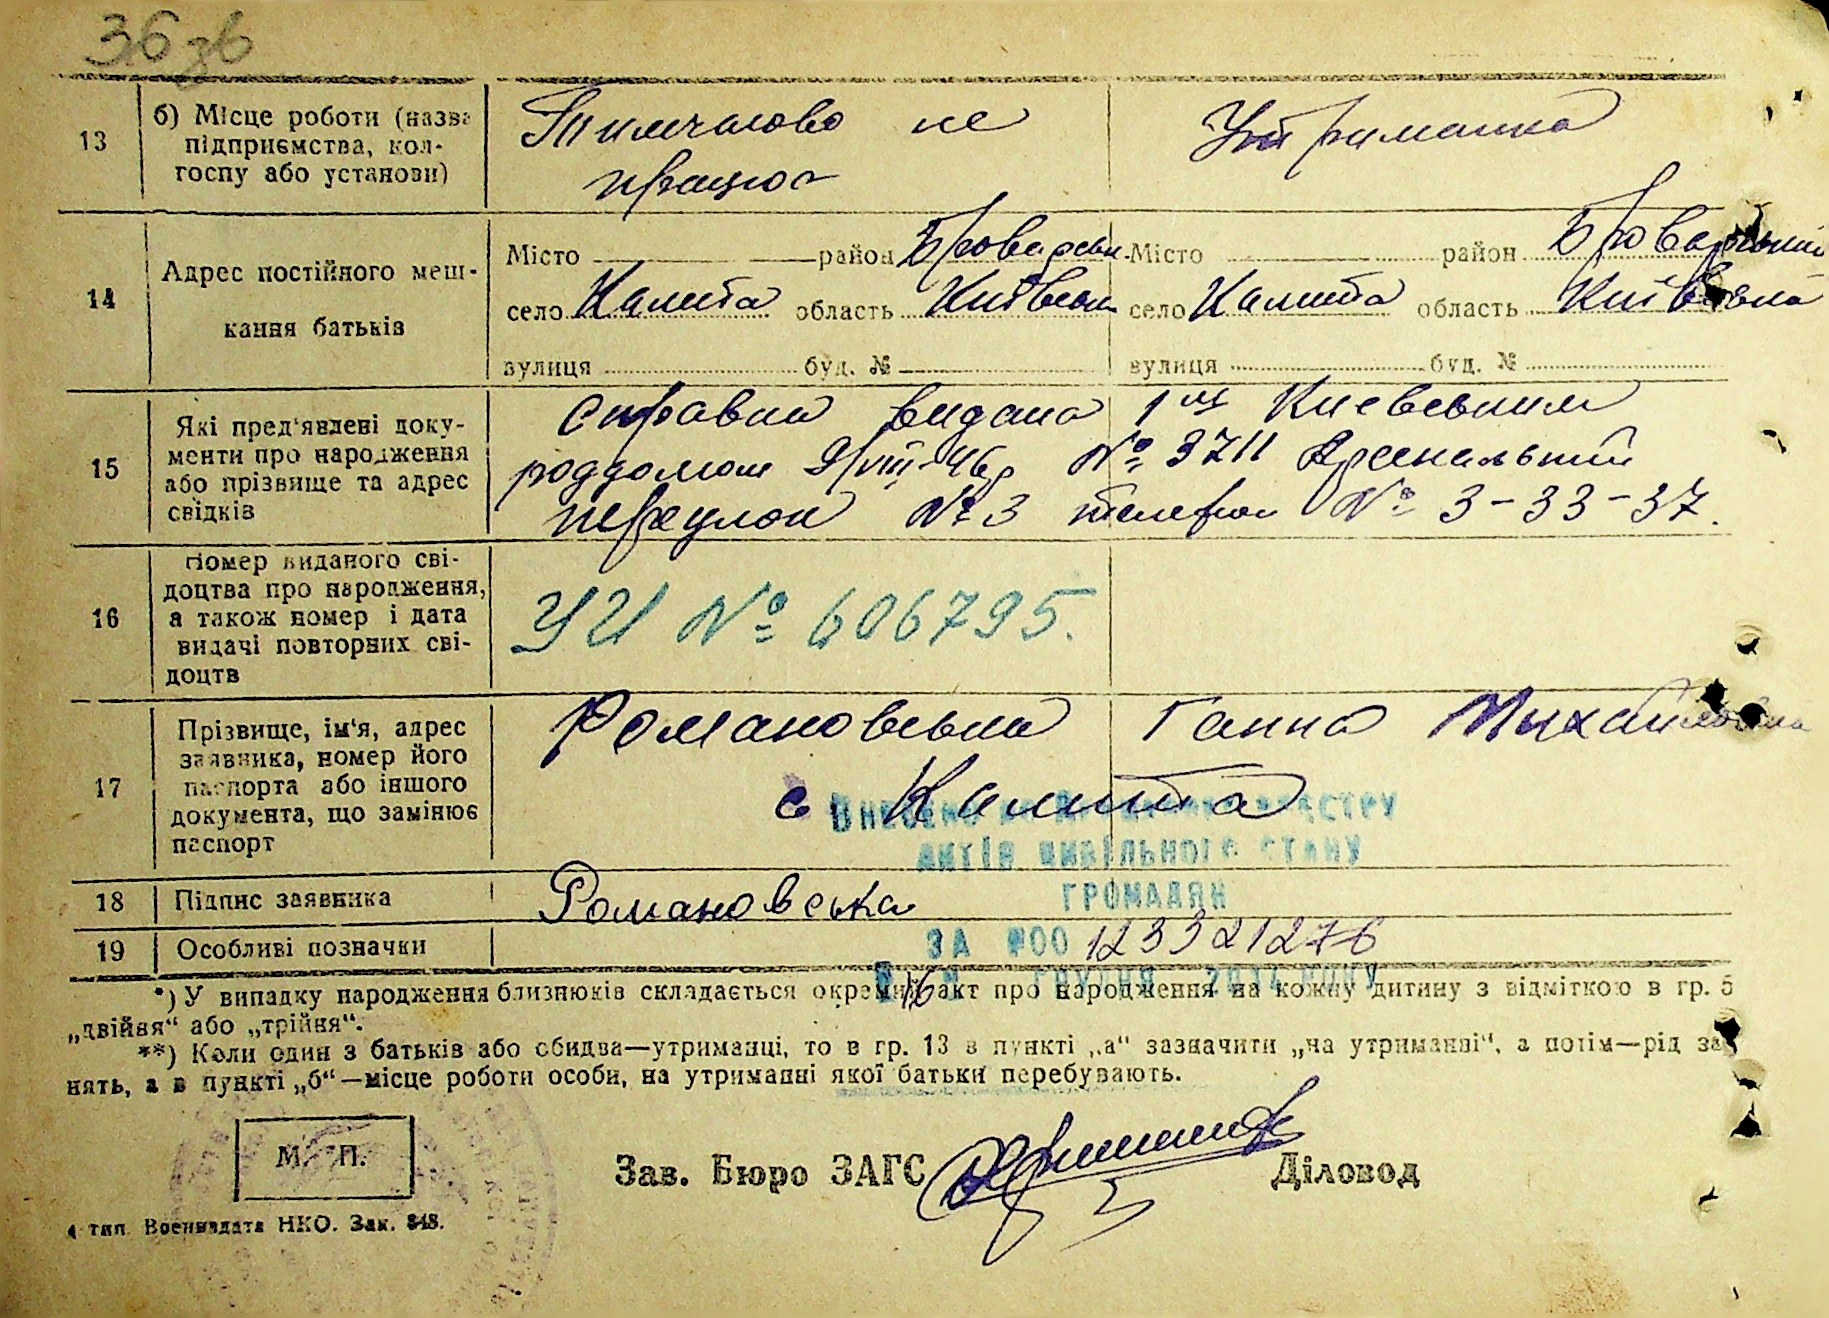 36 зв
13 б) Місце роботи (назва підприємства, колгоспу або установи) Тимчасово не працює Утриманка
14 Адрес постійного мешкання батьків
Місто район Броварськ. Місто район Броварський
село Калита область Київськ село Калита область Київська
вулиця буд. № вулиця буд. №
15 Які пред'явлені документи про народження або прізвище та адрес свідків
справка видана 1им Киевським
роддомом 9/VIII-46р № 3711 Арсенальний
переулок № 3 телефон № 3-33-37.
16 Номер виданого свідоцтва про народження, а також номер і дата видачі повторних свідоцтв УИ № 606795.
17 Прізвище, ім'я, адрес заявника, номер його паспорта або іншого документа, що замінює паспорт
Романовська Ганна Михайловна
с Калита
Внесено до Державного реєстру
актів цивільного стану
громадян
18 Підпис заявника Романовська
19 Особливі позначки
за №00 123321276
*) У випадку народження близнюків складається окремий акт про народження на кожну дитину з відміткою в гр. 5
„двійня“ або „трійня“.
**) Коли один з батьків або обидва—утриманці, то в гр. 13 в пункті „а“ зазначити „на утриманні“, а потім—рід за-
нять, а в пункті „б“—місце роботи особи, на утриманні якої батьки перебувають.
М. П.
Зав. Бюро ЗАГС Діловод
4 тип. Воениздата НКО. Зак. 848.